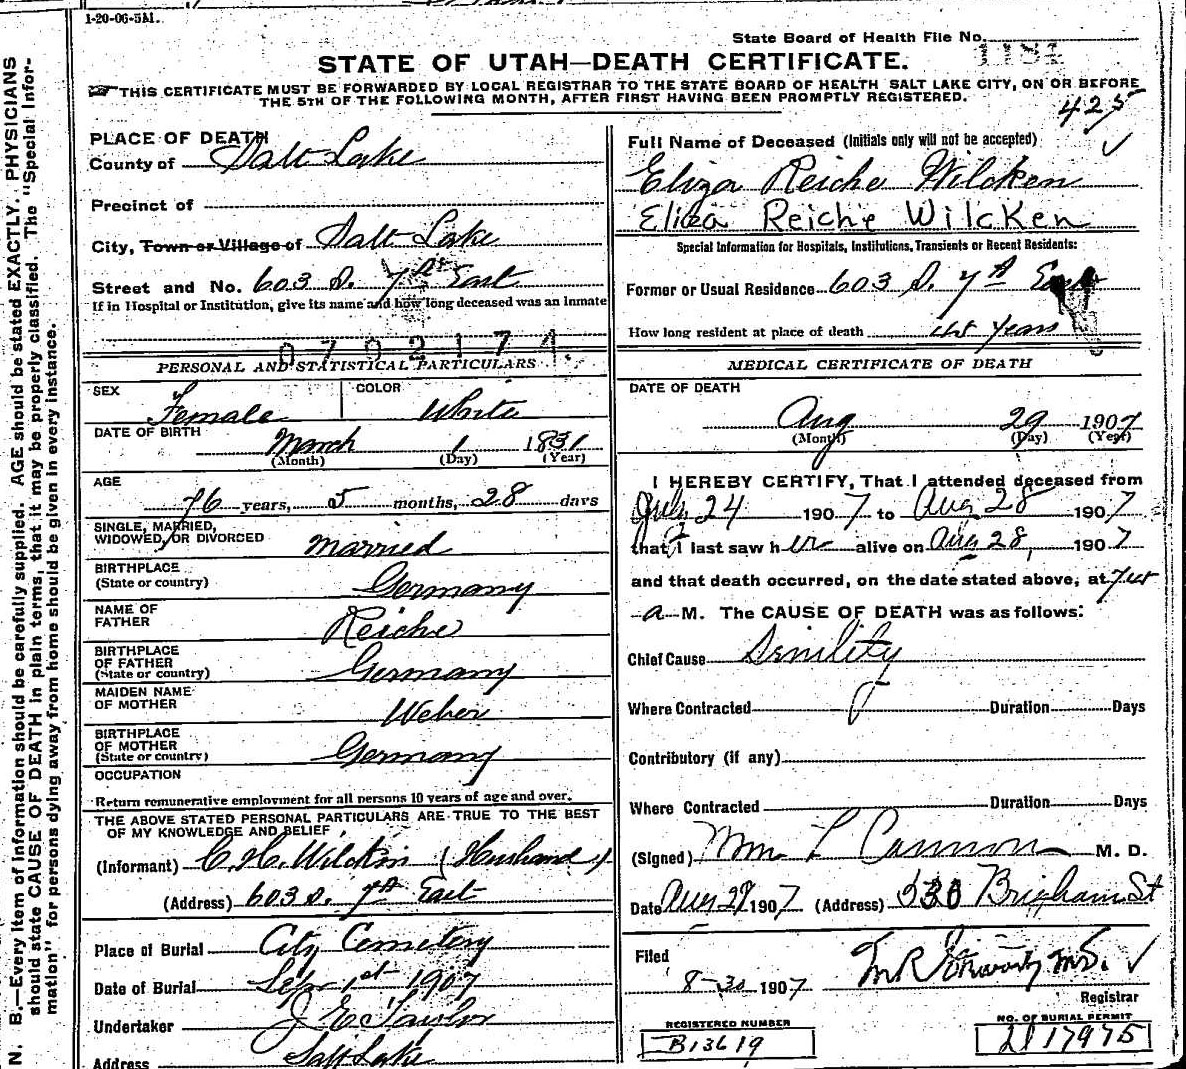 1-20-06-5M.
State Board of Health File No.
1181
STATE OF UTAH—DEATH CERTIFICATE.
THIS CERTIFICATE MUST BE FORWARDED BY LOCAL REGISTRAR TO THE STATE BOARD OF HEALTH SALT LAKE CITY, ON OR BEFORE
THE 5TH OF THE FOLLOWING MONTH, AFTER FIRST HAVING BEEN PROMPTLY REGISTERED.
425
N. B.—Every item of information should be carefully supplied. AGE should be stated EXACTLY. PHYSICIANS
should state CAUSE OF DEATH in plain terms, that it may be properly classified. The "Special Infor-
mation" for persons dying away from home should be given in every instance.
PLACE OF DEATH
County of Salt Lake
Precinct of
City, Town or Village of Salt Lake
Street and No. 603 S. 7th East
If in Hospital or Institution, give its name and how long deceased was an inmate
0702171
PERSONAL AND STATISTICAL PARTICULARS
SEX Female COLOR White
DATE OF BIRTH March 1 1831
(Month) (Day) (Year)
AGE
76 years, 5 months, 28 days
SINGLE, MARRIED,
WIDOWED, OR DIVORCED Married
BIRTHPLACE
(State or country) Germany
NAME OF
FATHER Reiche
BIRTHPLACE
OF FATHER
(State or country) Germany
MAIDEN NAME
OF MOTHER Weber
BIRTHPLACE
OF MOTHER
(State or country) Germany
OCCUPATION
Return remunerative employment for all persons 10 years of age and over.
THE ABOVE STATED PERSONAL PARTICULARS ARE TRUE TO THE BEST
OF MY KNOWLEDGE AND BELIEF
(Informant) C. H. Wilckin (Husband)
(Address) 603 S. 7th East
Place of Burial City Cemetery
Date of Burial Sept 1st 1907
Undertaker J E Taylor
Address Salt Lake
Full Name of Deceased (Initials only will not be accepted)
Eliza Reiche Wilcken
Eliza Reiche Wilcken
Special Information for Hospitals, Institutions, Transients or Recent Residents:
Former or Usual Residence 603 S. 7th East
How long resident at place of death Years
MEDICAL CERTIFICATE OF DEATH
DATE OF DEATH
Aug 29 1907
(Month) (Day) (Year)
I HEREBY CERTIFY, That I attended deceased from
July 24 1907 to Aug 28 1907
that I last saw her alive on Aug 28, 1907
and that death occurred, on the date stated above, at
a M. The CAUSE OF DEATH was as follows:
Chief Cause Senility
Where Contracted Duration Days
Contributory (if any)
Where Contracted Duration Days
(Signed) Wm L Cannon M. D.
Date Aug 29 1907 (Address) 530 Brigham St
Filed
8-30 1907
Registrar
REGISTERED NUMBER
B13619
NO. OF BURIAL PERMIT
17975